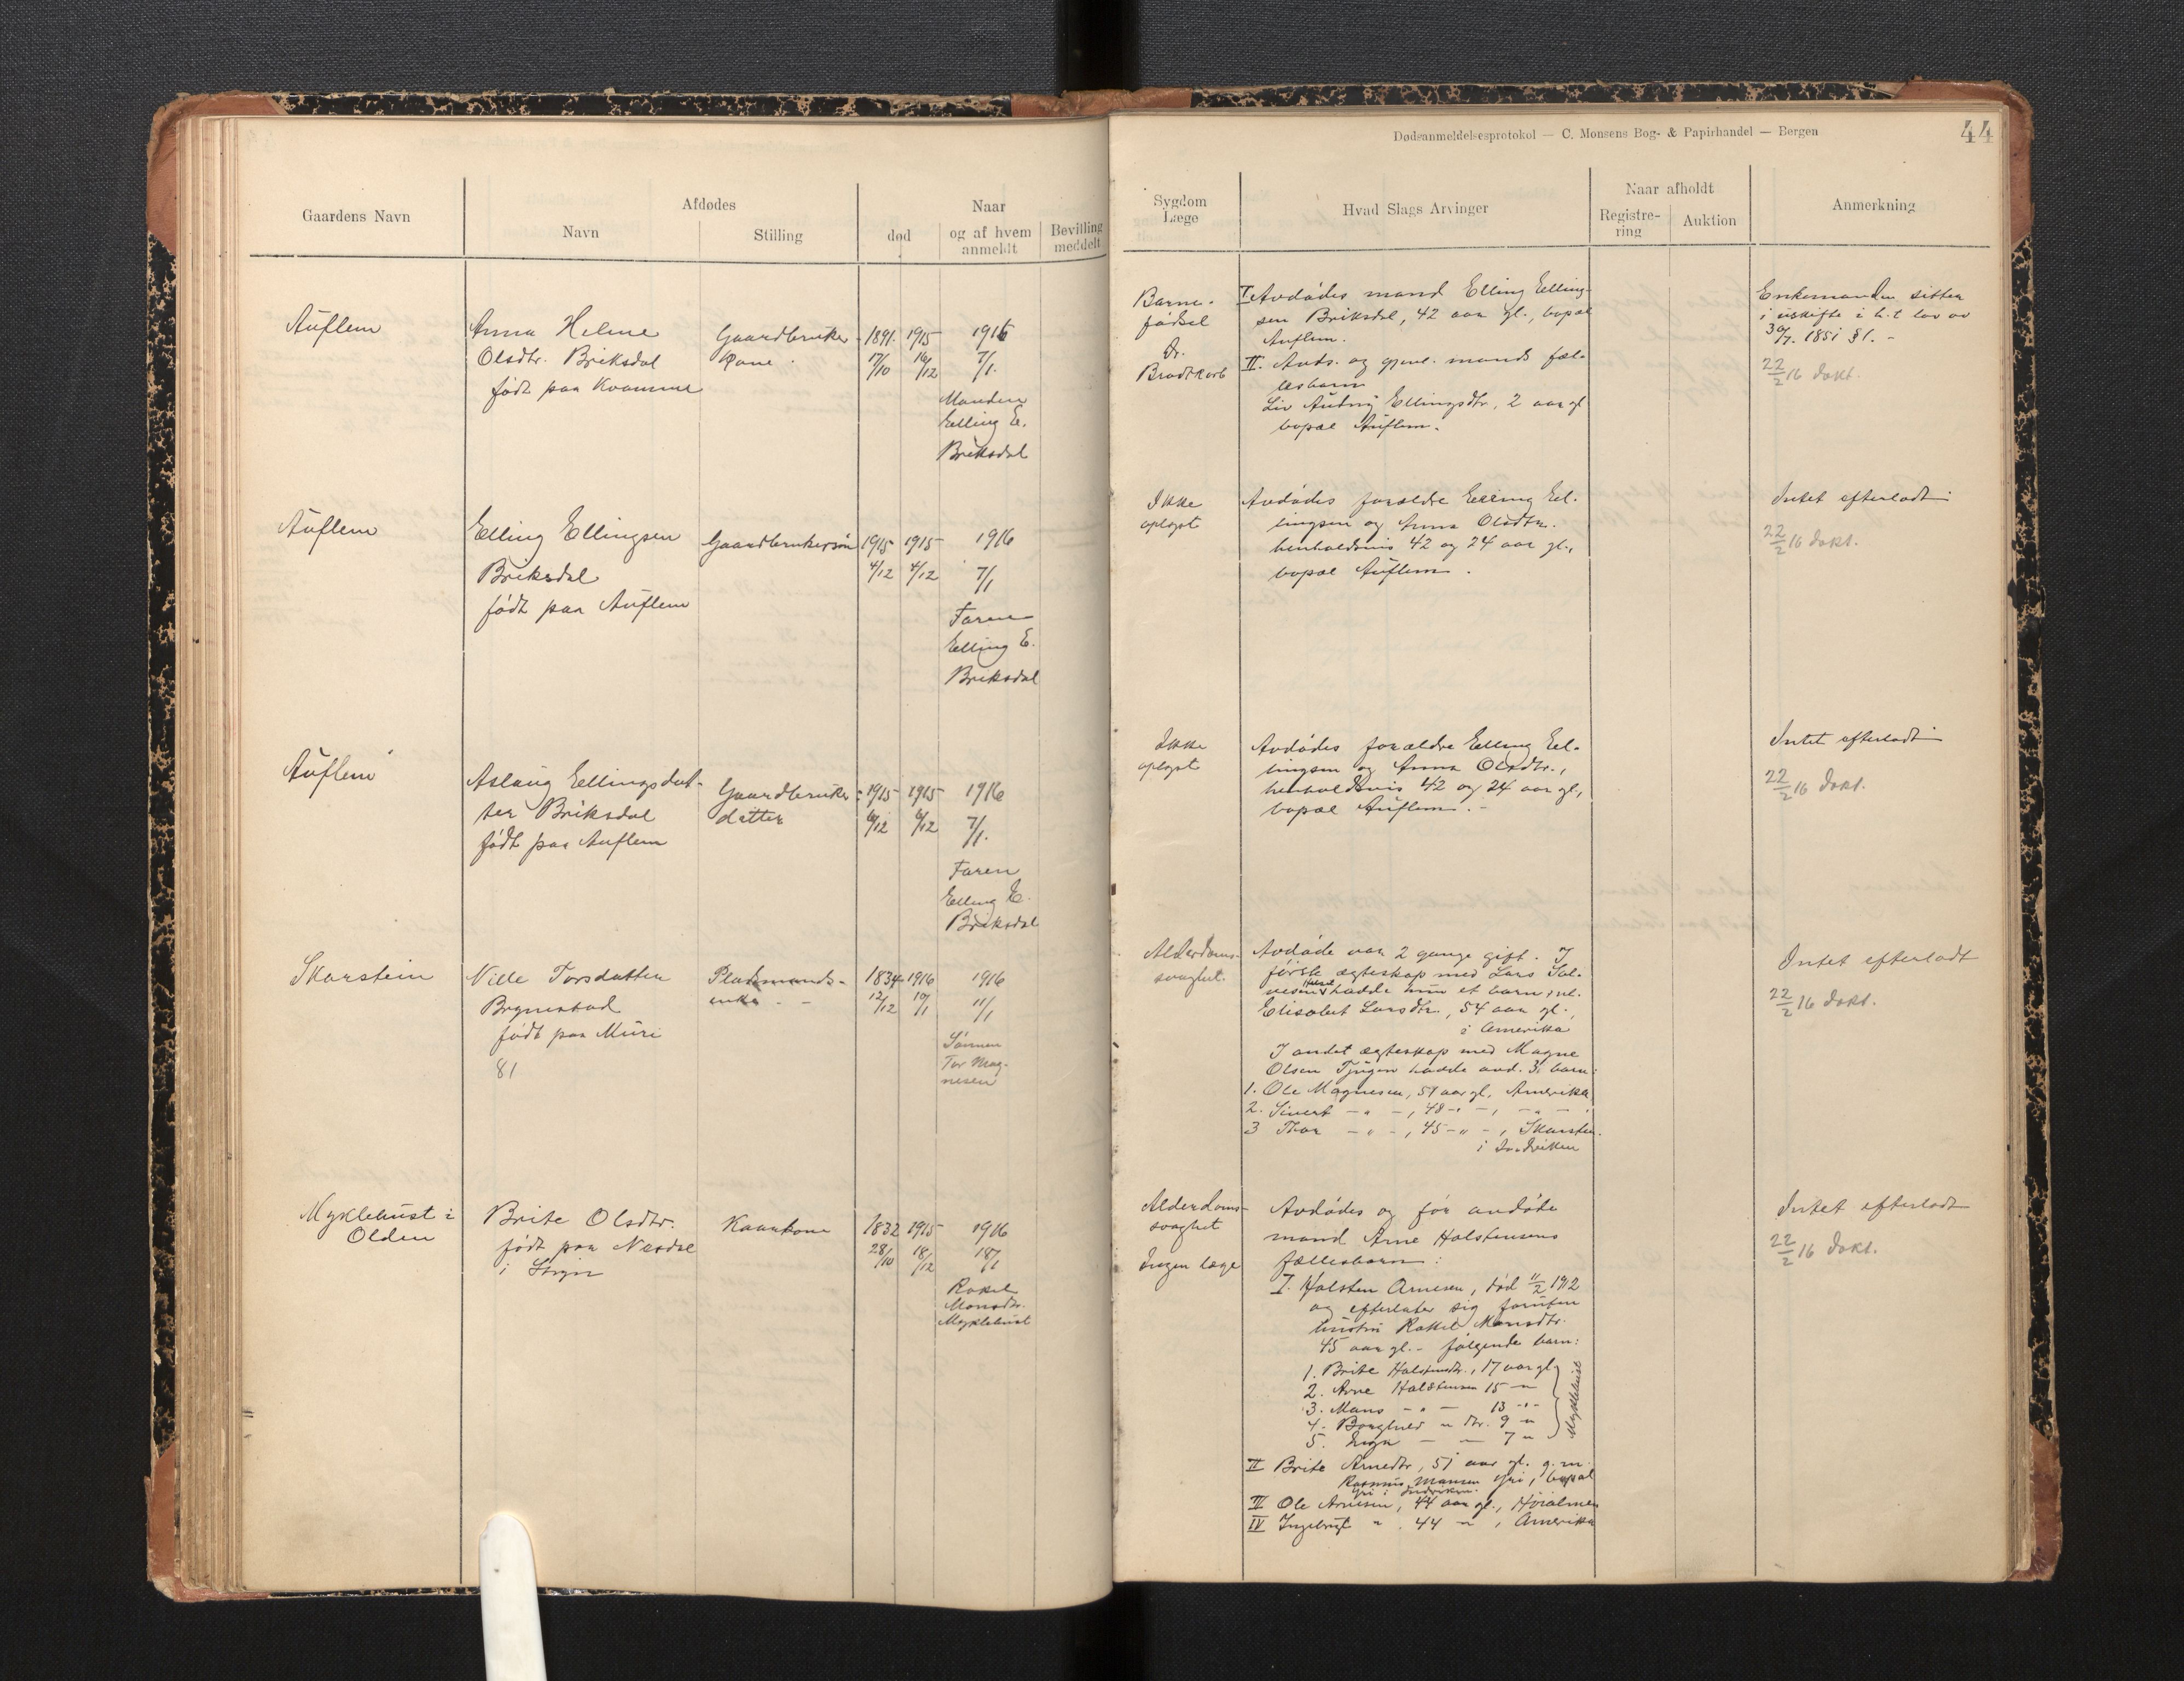 Dødsanmeldelsesprotokol — C. Monsens Bog- & Papirhandel — Bergen
44
Gaardens Navn
Afdødes
Navn
Stilling
Naar
død
og af hvem
anmeldt
Bevilling
meddelt
Sygdom
Læge
Hvad Slags Arvinger
Naar afholdt
Registre-
ring
Auktion
Anmerkning
Auflem
Anna Helene
Olsdtr. Briksdal
født paa Kvamme
Gaardbruker
kone
1891 1915
17/10 16/12
1916
7/1.
Manden
Elling E.
Briksdal
Barne-
fødsel
Dr.
Bradtkorb
I Avdødes mand Elling Elling-
sen Briksdal, 42 aar gl., bopæl
Auflem.
II. Avds. og gjenl. mands fæl-
lesbarn
Liv Ellingsdtr, 2 aar gl
bopæl Auflem.
Enkemanden sitter
i uskifte i h.t lov av
30/7. 1851 §1. -
22/2 16 dokt.
Auflem
Elling Ellingsen
Briksdal
født paa Auflem
Gaardbrukersøn
1915 1915
4/12 4/12
1916
7/1
Faren
Elling E.
Briksdal
Ikke
oplyst
Avdødes forældre Elling El-
lingsen og Anna Olsdtr.
henholdsvis 42 og 24 aar gl.,
bopæl Auflem.
Intet efterladt
22/2 16 dokt.
Auflem
Aslaug Ellingsdat-
ter Briksdal
født paa Auflem
Gaardbruker
datter
1915 1915
6/12 6/12
1916
7/1.
Faren
Elling E.
Briksdal
Ikke
oplyst
Avdødes forældre Elling El-
lingsen og Anna Olsdtr.,
henholdsvis 42 og 24 aar gl,
bopæl Auflem. -
Intet efterladt
22/2 16 dokt.
Skarstein
Nille Torsdatter
Brynestad
født paa Muri
81
Pladsmands-
enke
1834 1916
12/12 10/1
1916
11/1
Sønnen
Tor Mag-
nesen
Alderdoms-
svaghet.
Avdøde var 2 gange gift. I
første ægteskap med Lars
hadde hun et barn, nl.
Elisabet Larsdtr., 54 aar gl.,
i Amerika
I andet ægteskap med Magne
Olsen Tjugen hadde avd. 3 barn:
1. Ole Magnesen, 51 aar gl, Amerika
2. Sivert — " —, 48 - " -, — " —
3 Thor — " —, 45 - " -, Skarsten
i Indviken
Intet efterladt
22/2 16 dokt.
Myklebust i
Olden
Brite Olsdtr.
født paa Nesdal
i Stryn
Kaarkone
1832 1915
28/10 18/12
1916
18/1
Rakel
Monsdtr.
Myklebust
Alderdoms-
svaghet
Ingen læge
Avdødes og før avdøde
mand Arne Halstensens
fællesbarn:
I. Halsten Arnesen, død 11/2 1912
og efterlater sig foruten
hustru Rakel Monsdtr.
45 aar gl. - følgende barn:
1. Brite Halstensdtr., 17 aar gl
2. Arne Halstensen 15 "
3. Mans - " - 13 - " -
4. Borghild " dtr. 9 "
5. Inga — — 7 "
Myklebust
II Brite Arnedtr, 51 aar gl. g. m.
Rasmus Mansen Gri, bopæl
Gri i Indviken.
III Ole Arnesen, 44 aar gl.,
IV Ingebrigt " , 44 " , Amerika
Intet efterladt
22/2 16 dokt.